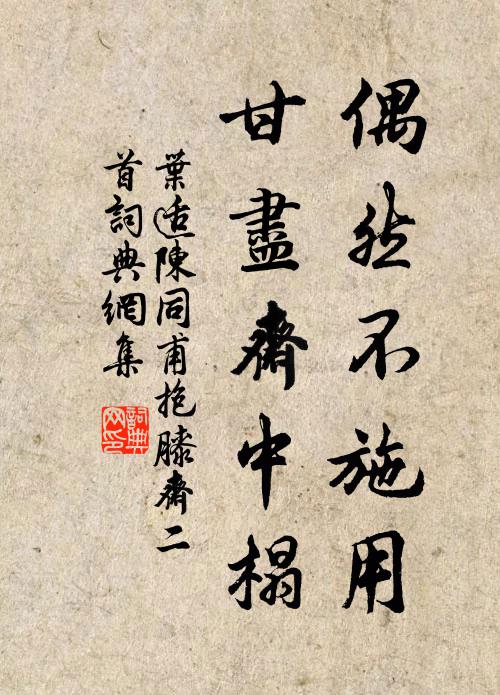 偶然不施用
甘盡齋中榻
葉适陳同甫抱膝齋二
首詞典網集
詞典网印